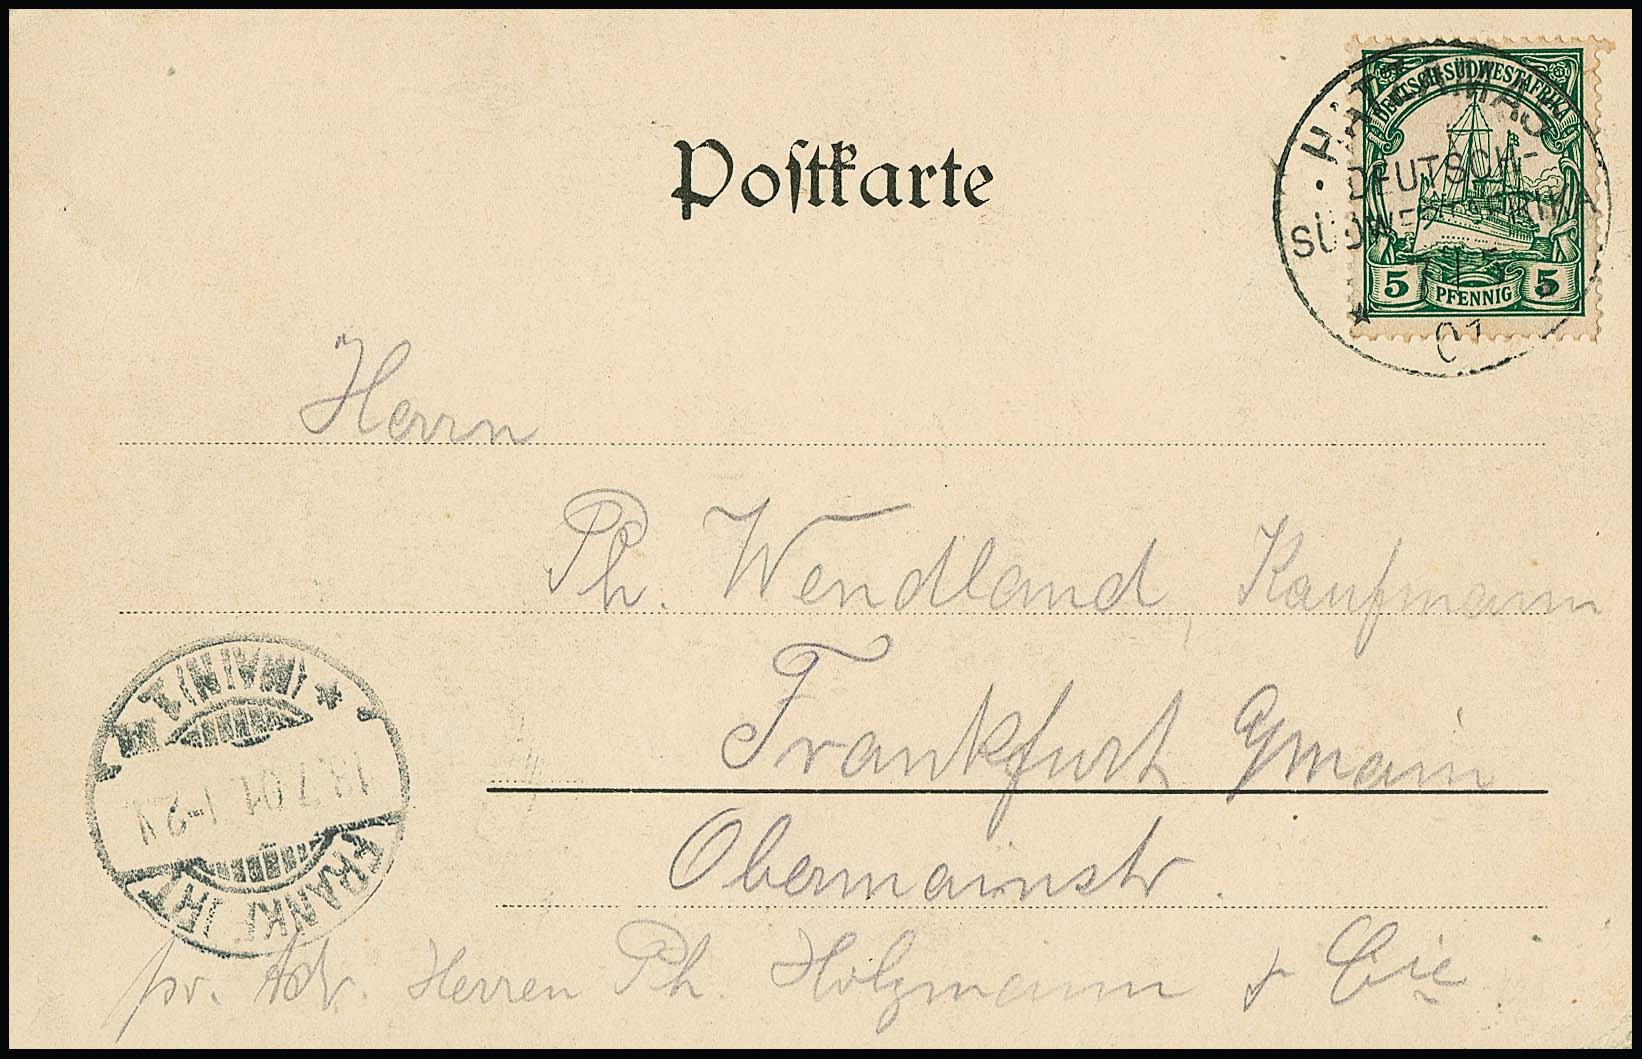 DEUTSCH-SÜDWESTAFRIKA
5 PFENNIG 5
HATZAMAS
DEUTSCH-
SÜDWESTAFRIKA
01
Postkarte
Herrn
Ph. Wendland, Kaufmann
Frankfurt a/main
Obermainstr.
pr. Adr. Herren Ph. Holzmann & Cie
FRANKFURT
18.7.01 1-2 N
(MAIN) 1